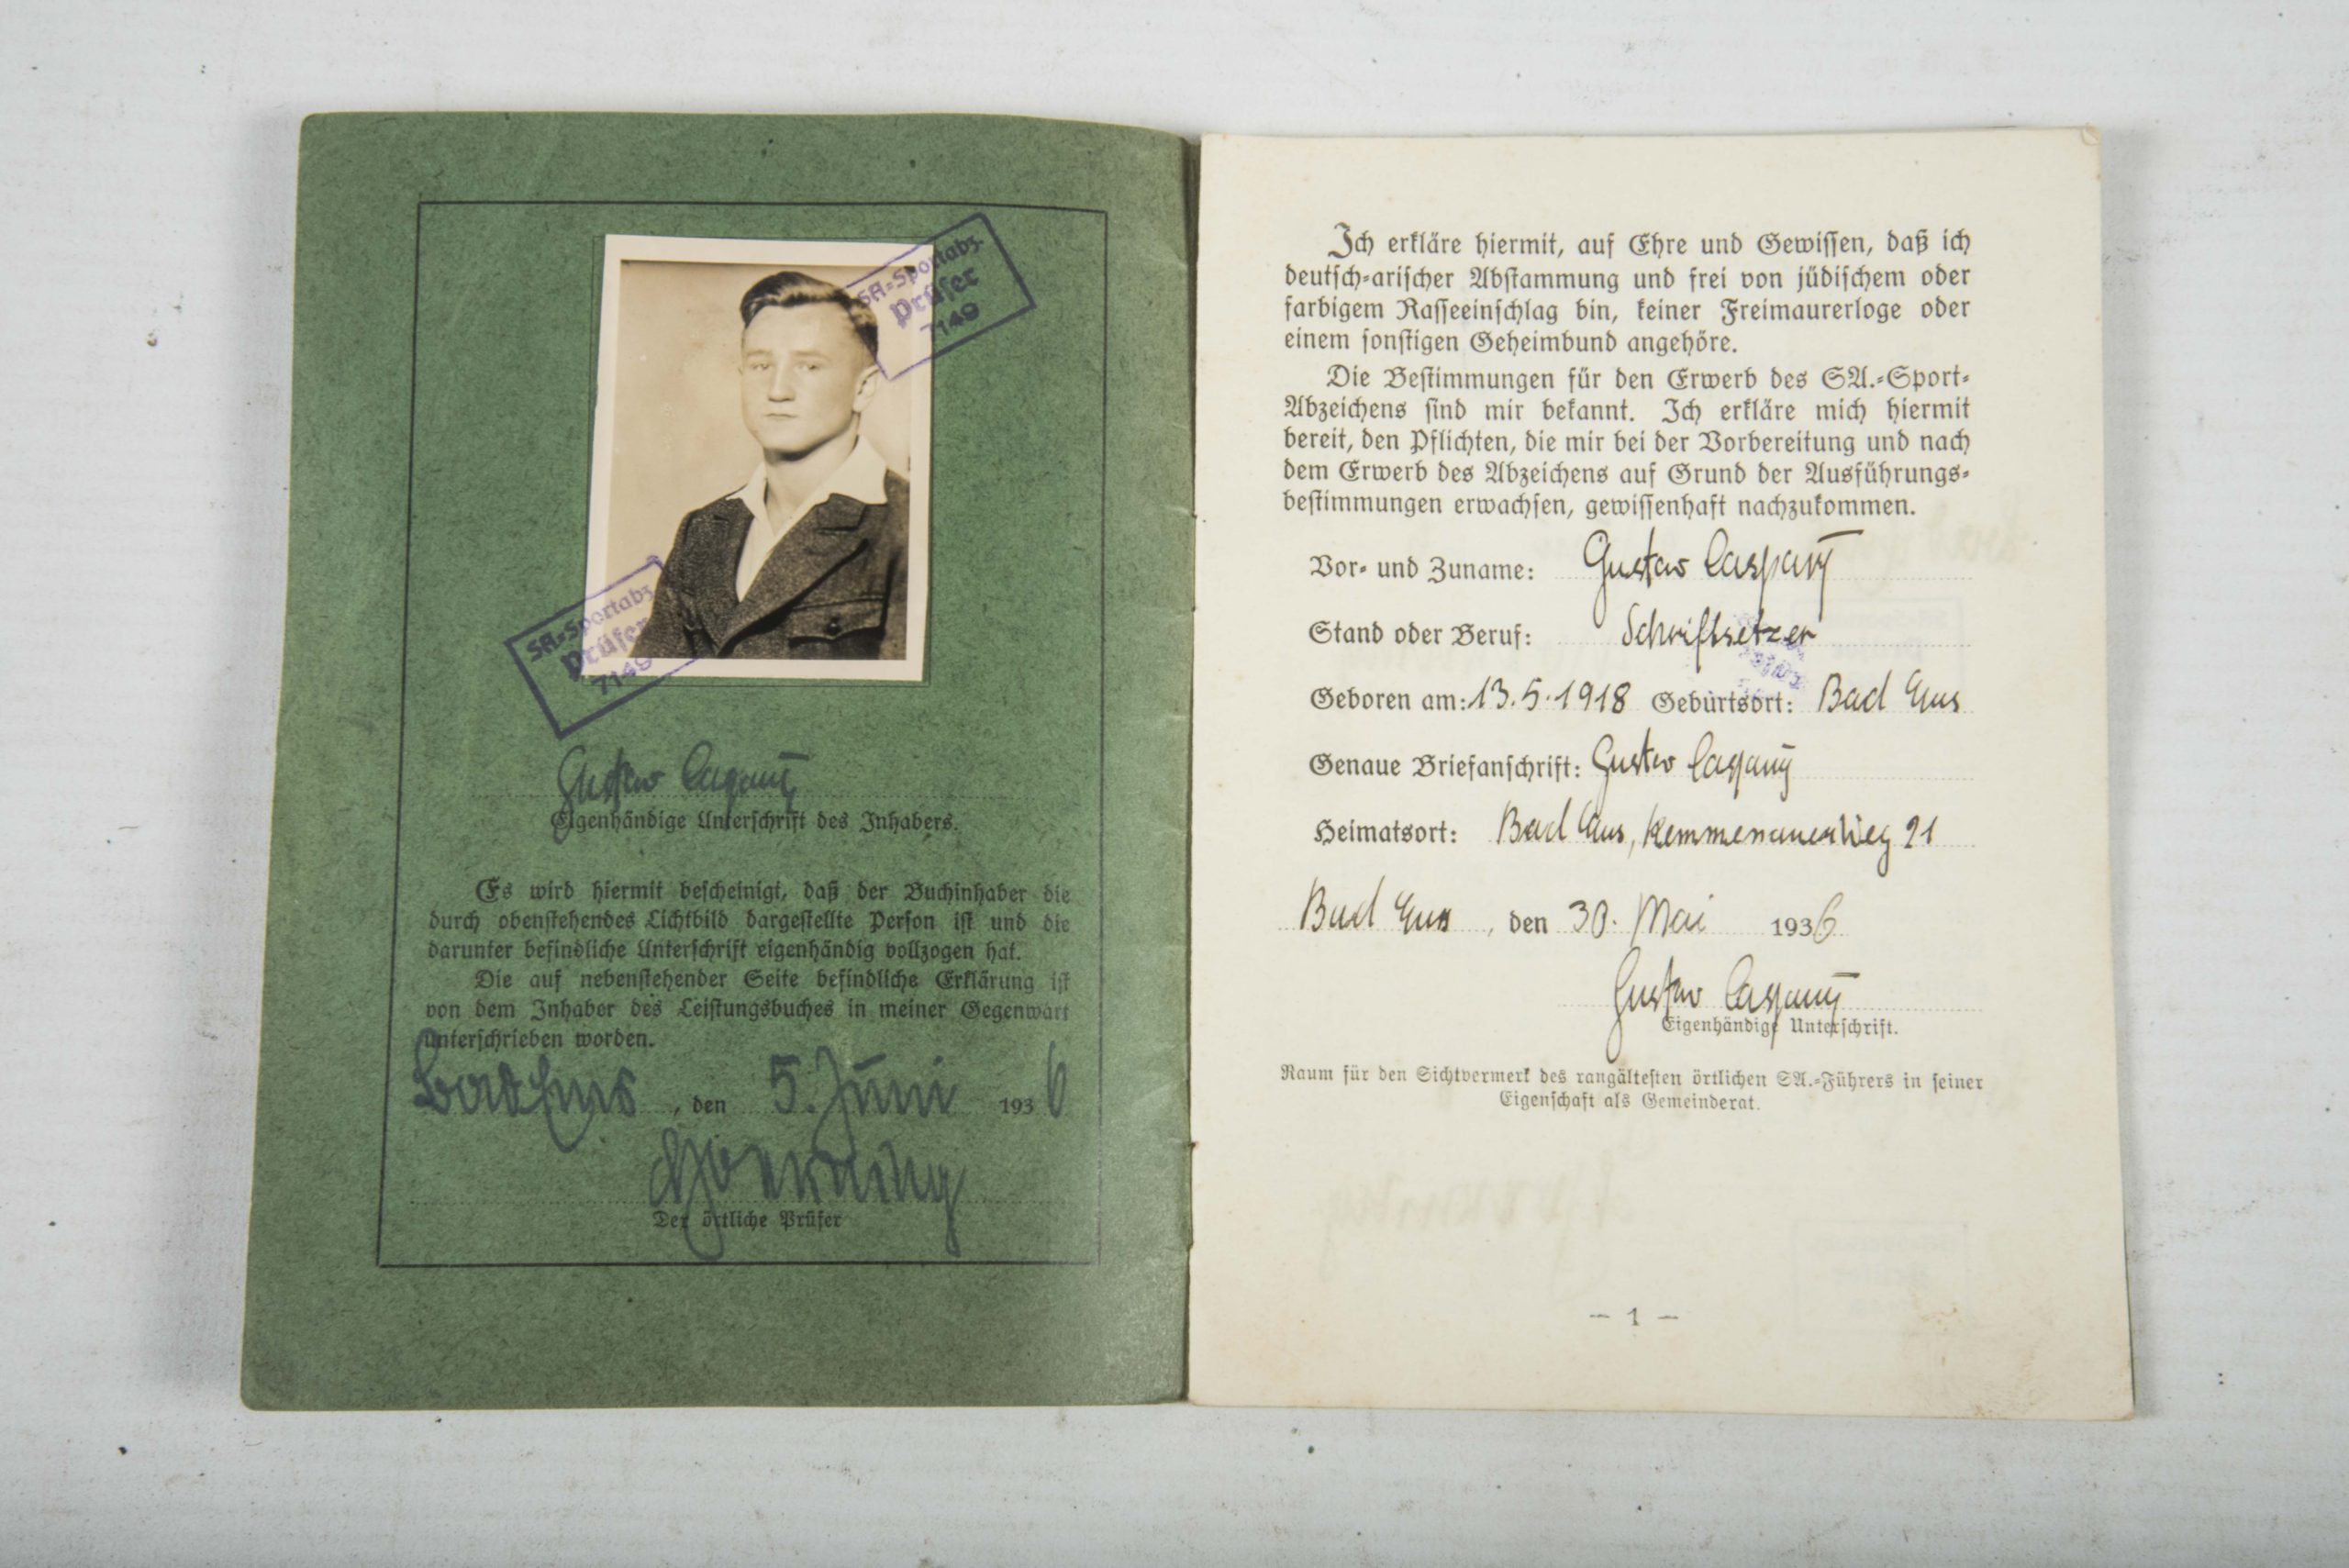 SA=Sportabz.
Prüfer
7149
SA=Sportabz.
Prüfer
7149
Gustav Caspary
Eigenhändige Unterschrift des Inhabers.
Es wird hiermit bescheinigt, daß der Buchinhaber die
durch obenstehendes Lichtbild dargestellte Person ist und die
darunter befindliche Unterschrift eigenhändig vollzogen hat.
Die auf nebenstehender Seite befindliche Erklärung ist
von dem Inhaber des Leistungsbuches in meiner Gegenwart
unterschrieben worden.
Bad Ems, den 5. Juni 1936
Der örtliche Prüfer
Ich erkläre hiermit, auf Ehre und Gewissen, daß ich
deutsch-arischer Abstammung und frei von jüdischem oder
farbigem Rasseeinschlag bin, keiner Freimaurerloge oder
einem sonstigen Geheimbund angehöre.
Die Bestimmungen für den Erwerb des SA.-Sport-
Abzeichens sind mir bekannt. Ich erkläre mich hiermit
bereit, den Pflichten, die mir bei der Vorbereitung und nach
dem Erwerb des Abzeichens auf Grund der Ausführungs-
bestimmungen erwachsen, gewissenhaft nachzukommen.
Vor- und Zuname: Gustav Caspary
Stand oder Beruf: Schriftsetzer
Geboren am: 13.5.1918 Geburtsort: Bad Ems
Genaue Briefanschrift: Gustav Caspary
Heimatsort: Bad Ems, Kemmenauerweg 21
Bad Ems, den 30. Mai 1936
Gustav Caspary
Eigenhändige Unterschrift.
Raum für den Sichtvermerk des rangältesten örtlichen SA.-Führers in seiner
Eigenschaft als Gemeinderat.
— 1 —